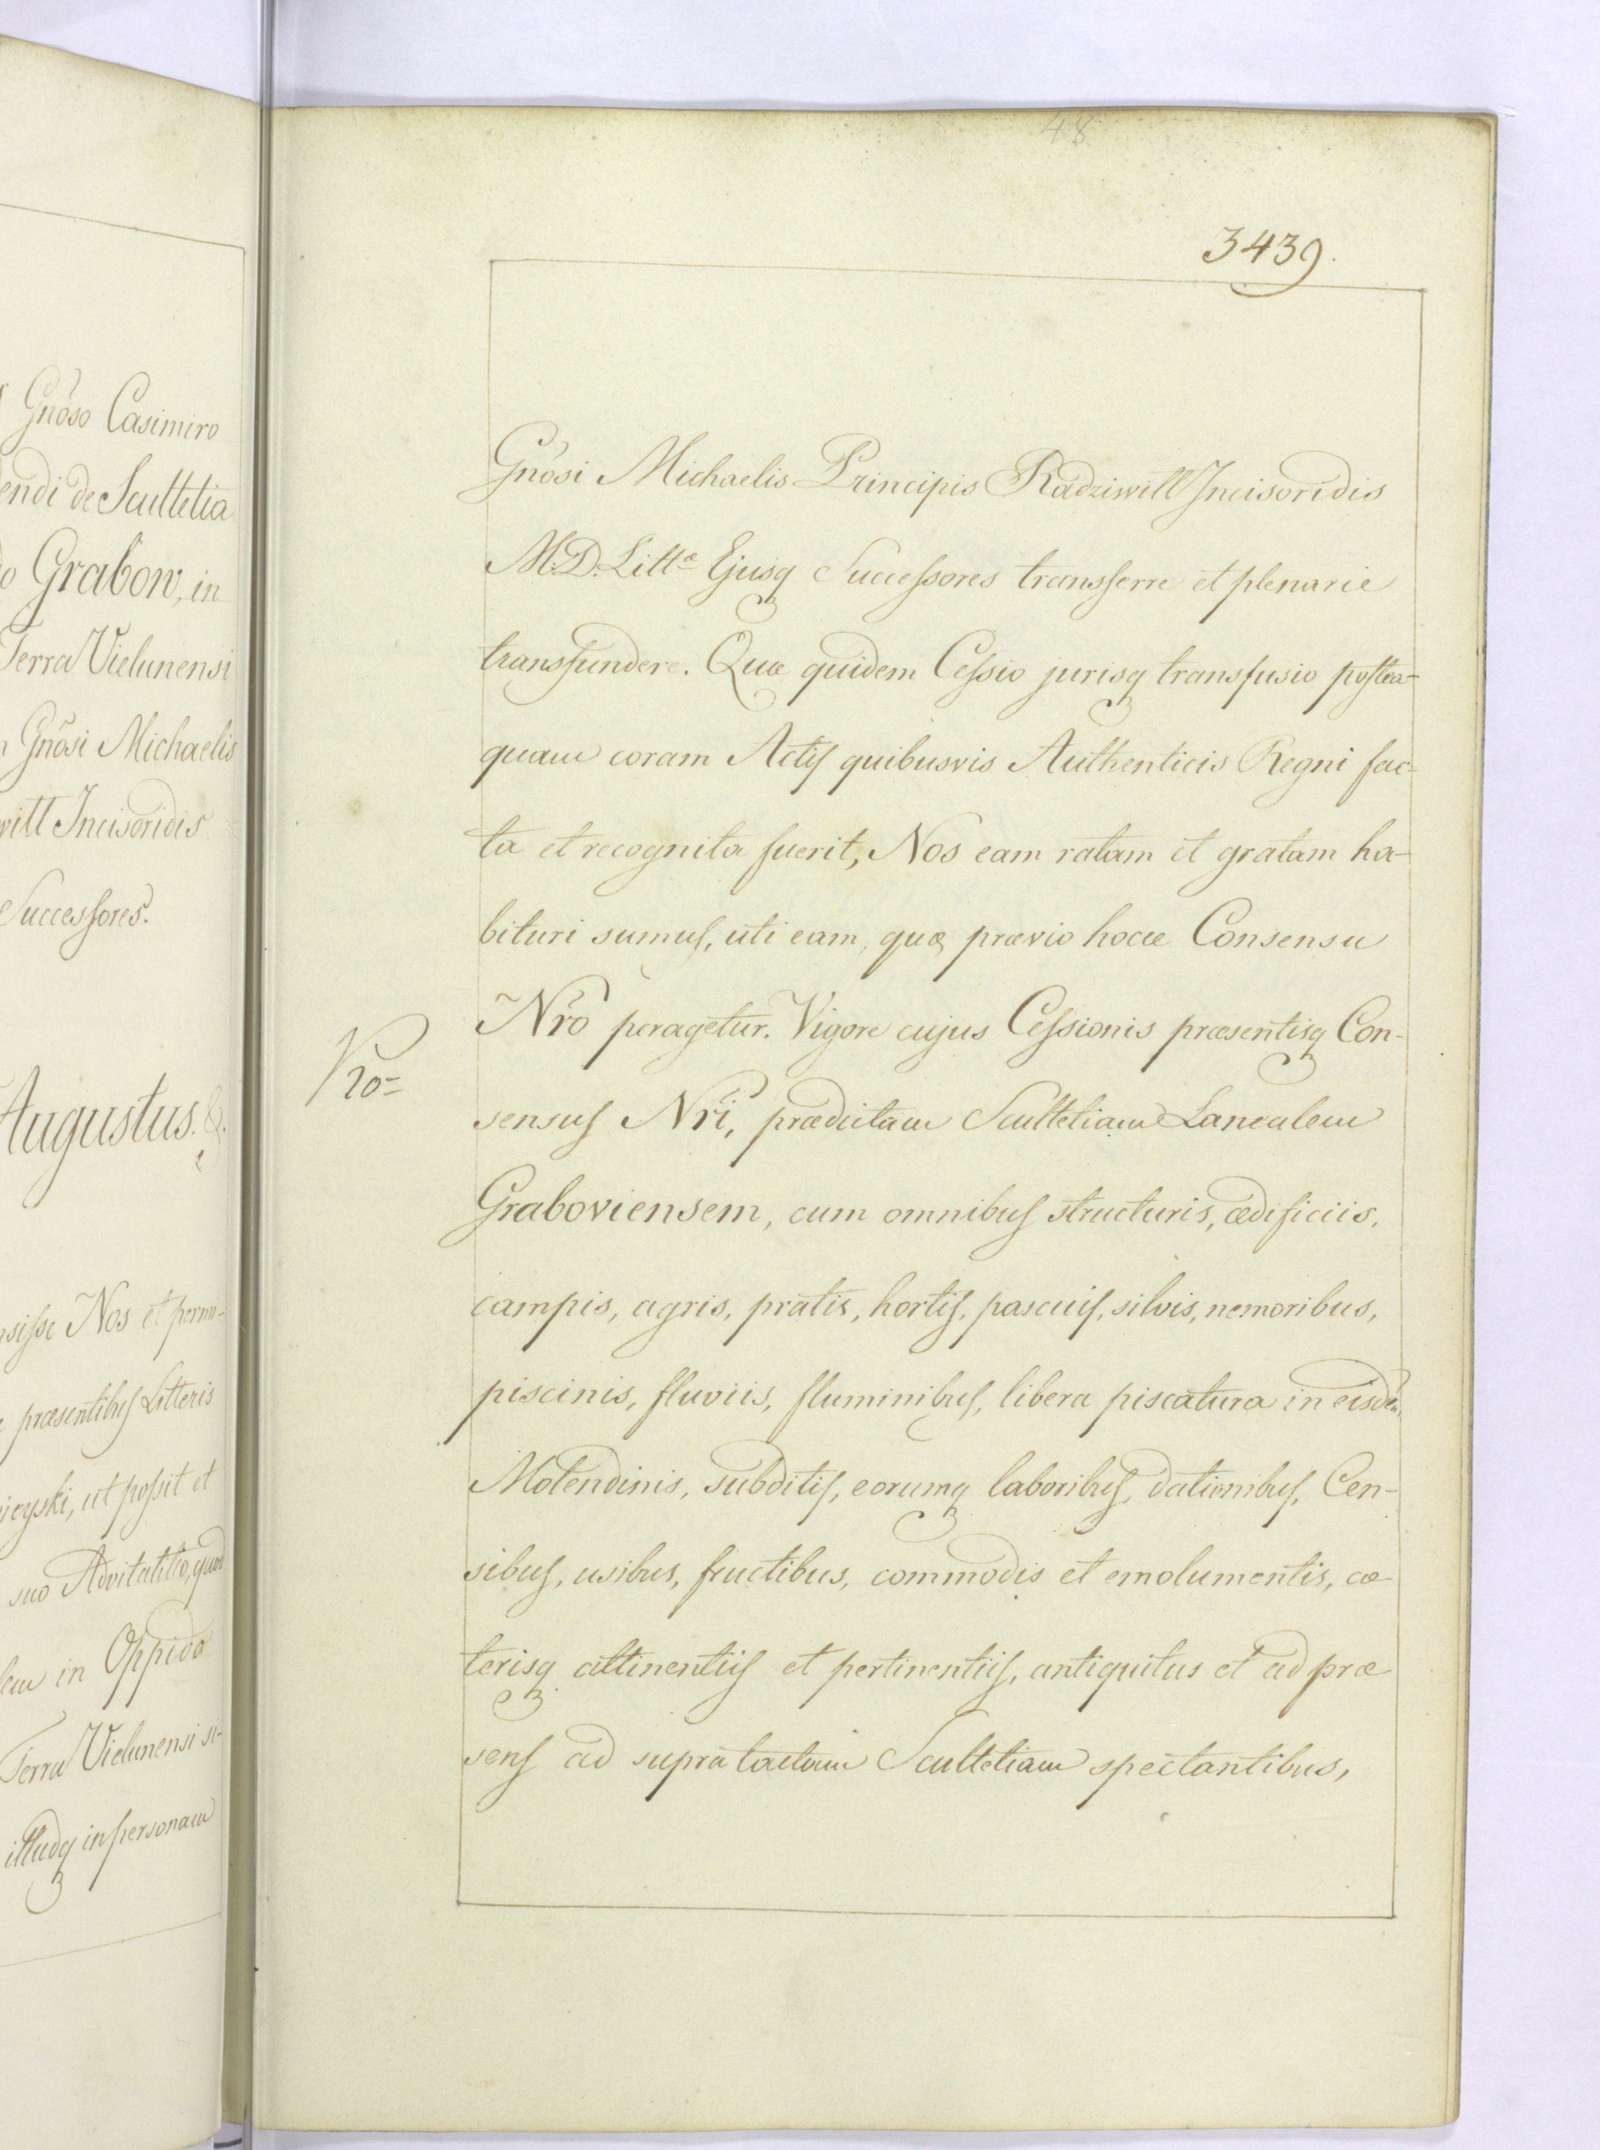 Gnõso Casimiro
endi de Scultetia
o Grabow, in
Terra Vielunensi
Gnõsi Michaelis
will Incisoridis
Successores.
Augustus. &.
nsisse Nos et permi-
præsentibus Litteris
icyski, ut possit et
suo Advitalitio, quod
in Oppido
Terra Vielunensi si-
illudq in personam
48
3439.
Gnõsi Michaelis Principis Radziwill Incisoridis
M.D. Littæ Ejusq Successores transferre et plenarie
transfundere. Quæ quidem Cessio jurisq transfusio postea-
quam coram Actis quibusvis Authenticis Regni fac-
ta et recognita fuerit, Nos eam ratam et gratam ha-
bituri sumus, uti eam, quæ prævio hocce Consensu
Nrõ peragetur. Vigore cujus Cessionis præsentisq Con-
sensus Nrĩ, prædictam Scultetiam Lanealem
Graboviensem, cum omnibus structuris, ædificiis,
campis, agris, pratis, hortis, pascuis, silvis, nemoribus,
piscinis, fluviis, fluminibus, libera piscatura in eisdẽ,
Molendinis, subditis, eorumq laboribus, dationibus, Cen-
sibus, usibus, fructibus, commodis et emolumentis, cæ-
terisq attinentiis et pertinentiis, antiquitus et ad præ
sens ad supratactam Scultetiam spectantibus,